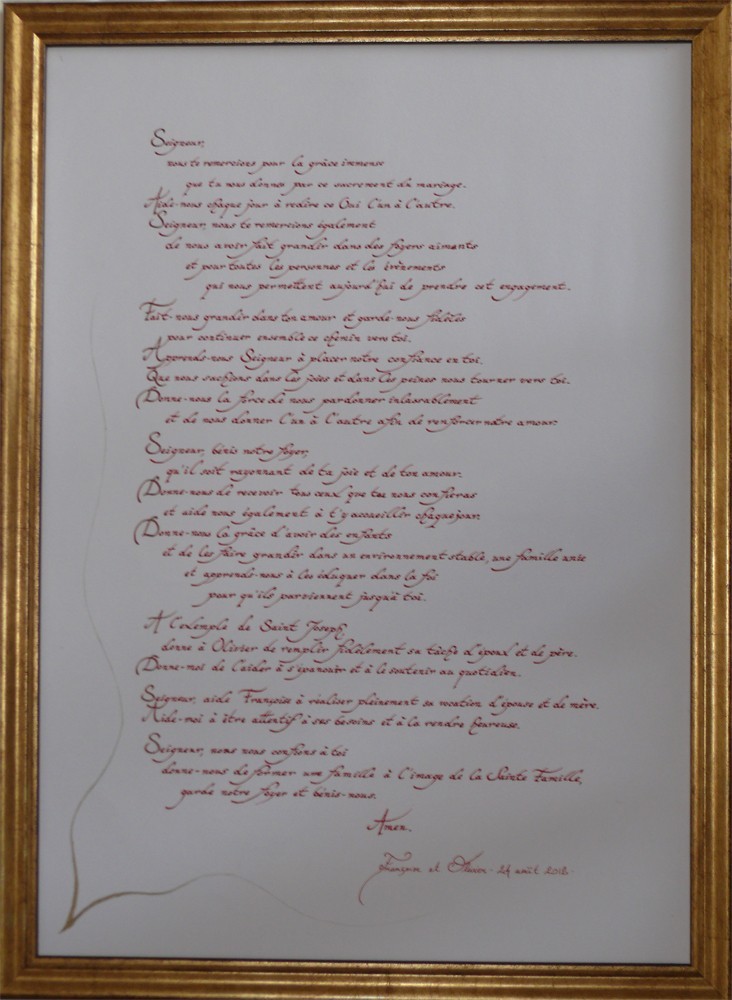 Seigneur,
nous te remercions pour la grâce immense
que tu nous donnes par ce sacrement du mariage.
Aide-nous chaque jour à redire ce Oui l'un à l'autre.
Seigneur, nous te remercions également
de nous avoir fait grandir dans des foyers aimants
et pour toutes les personnes et les évènements
qui nous permettent aujourd'hui de prendre cet engagement.
Fait-nous grandir dans ton amour et garde-nous fidèles
pour continuer ensemble ce chemin vers toi.
Apprends-nous Seigneur à placer notre confiance en toi.
Que nous sachions dans les joies et dans les peines nous tourner vers toi.
Donne-nous la force de nous pardonner inlassablement
et de nous donner l'un à l'autre afin de renforcer notre amour.
Seigneur, bénis notre foyer,
qu'il soit rayonnant de ta joie et de ton amour.
Donne-nous de recevoir tous ceux que tu nous confieras
et aide nous également à t'y accueillir chaque jour.
Donne-nous la grâce d'avoir des enfants
et de les faire grandir dans un environnement stable, une famille unie
et apprends-nous à les éduquer dans la foi
pour qu'ils parviennent jusqu'à toi.
A l'exemple de Saint Joseph,
donne à Olivier de remplir fidèlement sa tâche d'époux et de père.
Donne-moi de l'aider à s'épanouir et à le soutenir au quotidien.
Seigneur, aide Françoise à réaliser pleinement sa vocation d'épouse et de mère.
Aide-moi à être attentif à ses besoins et à la rendre heureuse.
Seigneur, nous nous confions à toi
donne-nous de former une famille à l'image de la Sainte Famille,
garde notre foyer et bénis-nous.
Amen.
Françoise et Olivier - 24 août 2012.